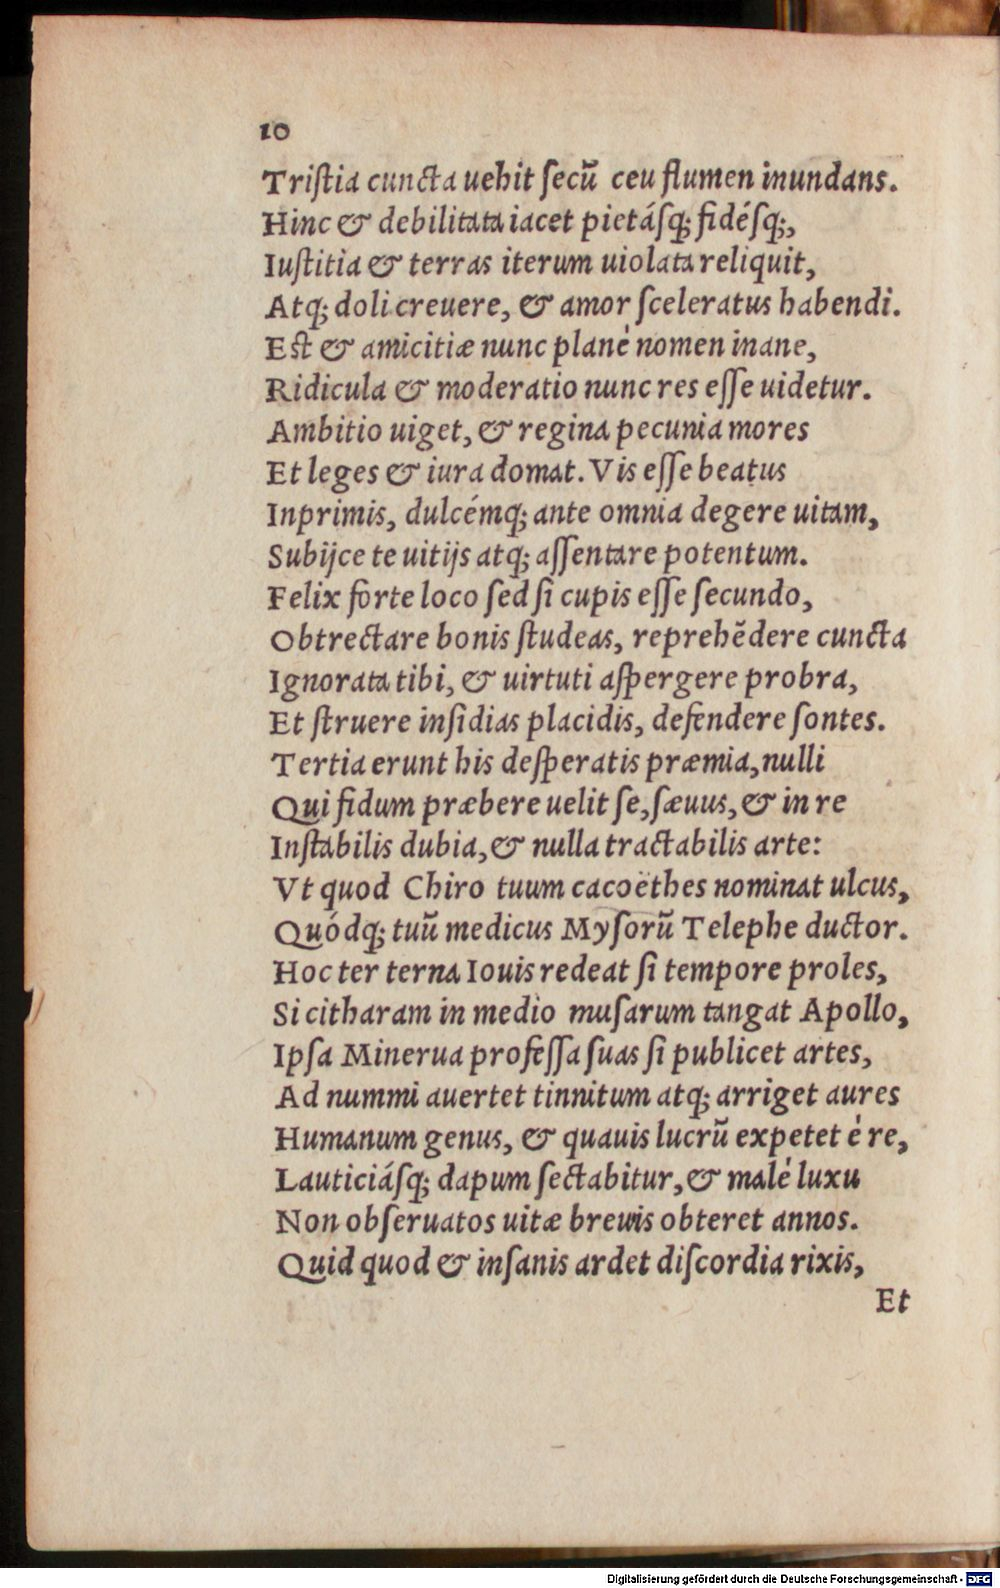 10
Triſtia cuncta uehit ſecũ ceu flumen inundans.
Hinc & debilitata iacet pietáſq; fidéſq;,
Iuſtitia & terras iterum uiolata reliquit,
Atq; doli creuere, & amor ſceleratus habendi.
Est & amicitiæ nunc planè nomen inane,
Ridicula & moderatio nunc res eſſe uidetur.
Ambitio uiget, & regina pecunia mores
Et leges & iura domat. Vis eſſe beatus
Inprimis, dulcémq; ante omnia degere uitam,
Subijce te uitijs atq; aſſentare potentum.
Felix forte loco ſed ſi cupis eſſe ſecundo,
Obtrectare bonis ſtudeas, reprehẽdere cuncta
Ignorata tibi, & uirtuti aſpergere probra,
Et ſtruere inſidias placidis, defendere ſontes.
Tertia erunt his deſperatis præmia, nulli
Qui fidum præbere uelit ſe, ſæuus, & in re
Inſtabilis dubia, & nulla tractabilis arte:
Vt quod Chiro tuum cacoëthes nominat ulcus,
Quódq; tuũ medicus Myſorũ Telephe ductor.
Hoc ter terna Iouis redeat ſi tempore proles,
Si citharam in medio muſarum tangat Apollo,
Ipſa Minerua profeſſa ſuas ſi publicet artes,
Ad nummi auertet tinnitum atq; arriget aures
Humanum genus, & quauis lucrũ expetet è re,
Lauticiáſq; dapum ſectabitur, & malè luxu
Non obſeruatos uitæ breuis obteret annos.
Quid quod & inſanis ardet diſcordia rixis,
Et
Digitalisierung gefördert durch die Deutsche Forschungsgemeinschaft - DFG